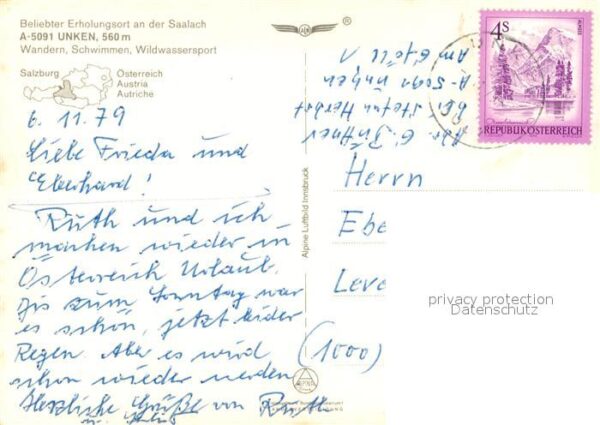 Beliebter Erholungsort an der Saalach
A-5091 UNKEN, 560 m
Wandern, Schwimmen, Wildwassersport
Salzburg
Österreich
Austria
Autriche
6. 11. 79
Liebe Frieda und
Eberhard!
Ruth und ich
machen wieder in
Österreich Urlaub.
Bis zum Sonntag war
es schön, jetzt leider
Regen. Aber es wird
schon wieder werden
Herzliche Grüße von Ruth
u.
Alpine Luftbild Innsbruck
®
Abs. G.
bei Stefan Herbst
A-5091 Unken
Am
4 S
ALMSEE
REPUBLIK ÖSTERREICH
Herrn
Ebe
Leve
(1000)
privacy protection
Datenschutz